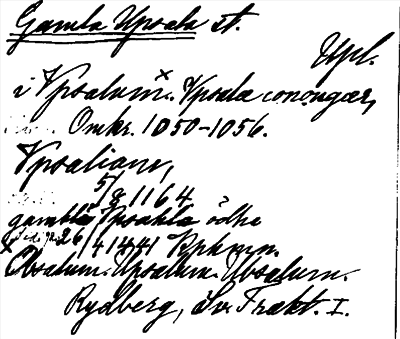 Gamla Upsala st.
Upl.
i Upsalum.x Upsala conongær,
Omkr. 1050-1056.
Upsaliam,
5/8 1164
gambla Upsahla ödhe
26/4 1441
x Obsalum. Upsalum. Ubsalum.
Rydberg, Sv. Trakt. I.